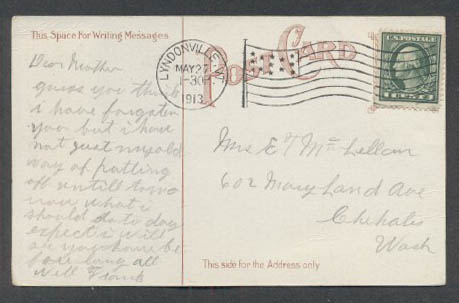 This Space For Writing Messages
POST CARD
LYNDONVILLE, VT.
MAY 27
1-30
1913
U.S. POSTAGE
Dear Mother
guess you think
i have forgoten
you but i have
not just my old
way of putting
off untill tomo
row what i
should do to day
expect i will
see you some be
fore long all
well Frank
Mrs E T McLellan
602 Maryland Ave
Chehalis
Wash
This side for the Address only